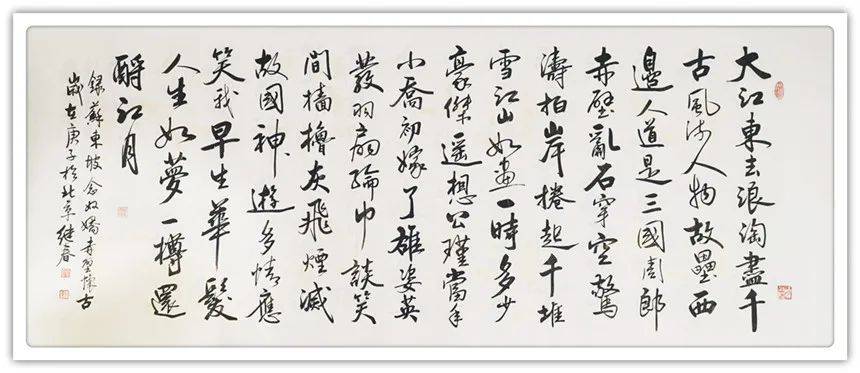 大江東去浪淘盡千
古風流人物故壘西
邊人道是三國周郎
赤壁亂石穿空驚
濤拍岸捲起千堆
雪江山如畫一時多少
豪傑遥想公瑾當年
小喬初嫁了雄姿英
發羽扇綸巾談笑
間檣櫓灰飛煙滅
故國神遊多情應
笑我早生華髮
人生如夢一樽還
酹江月
録蘇東坡念奴嬌赤壁懷古
歲在庚子於北京继春